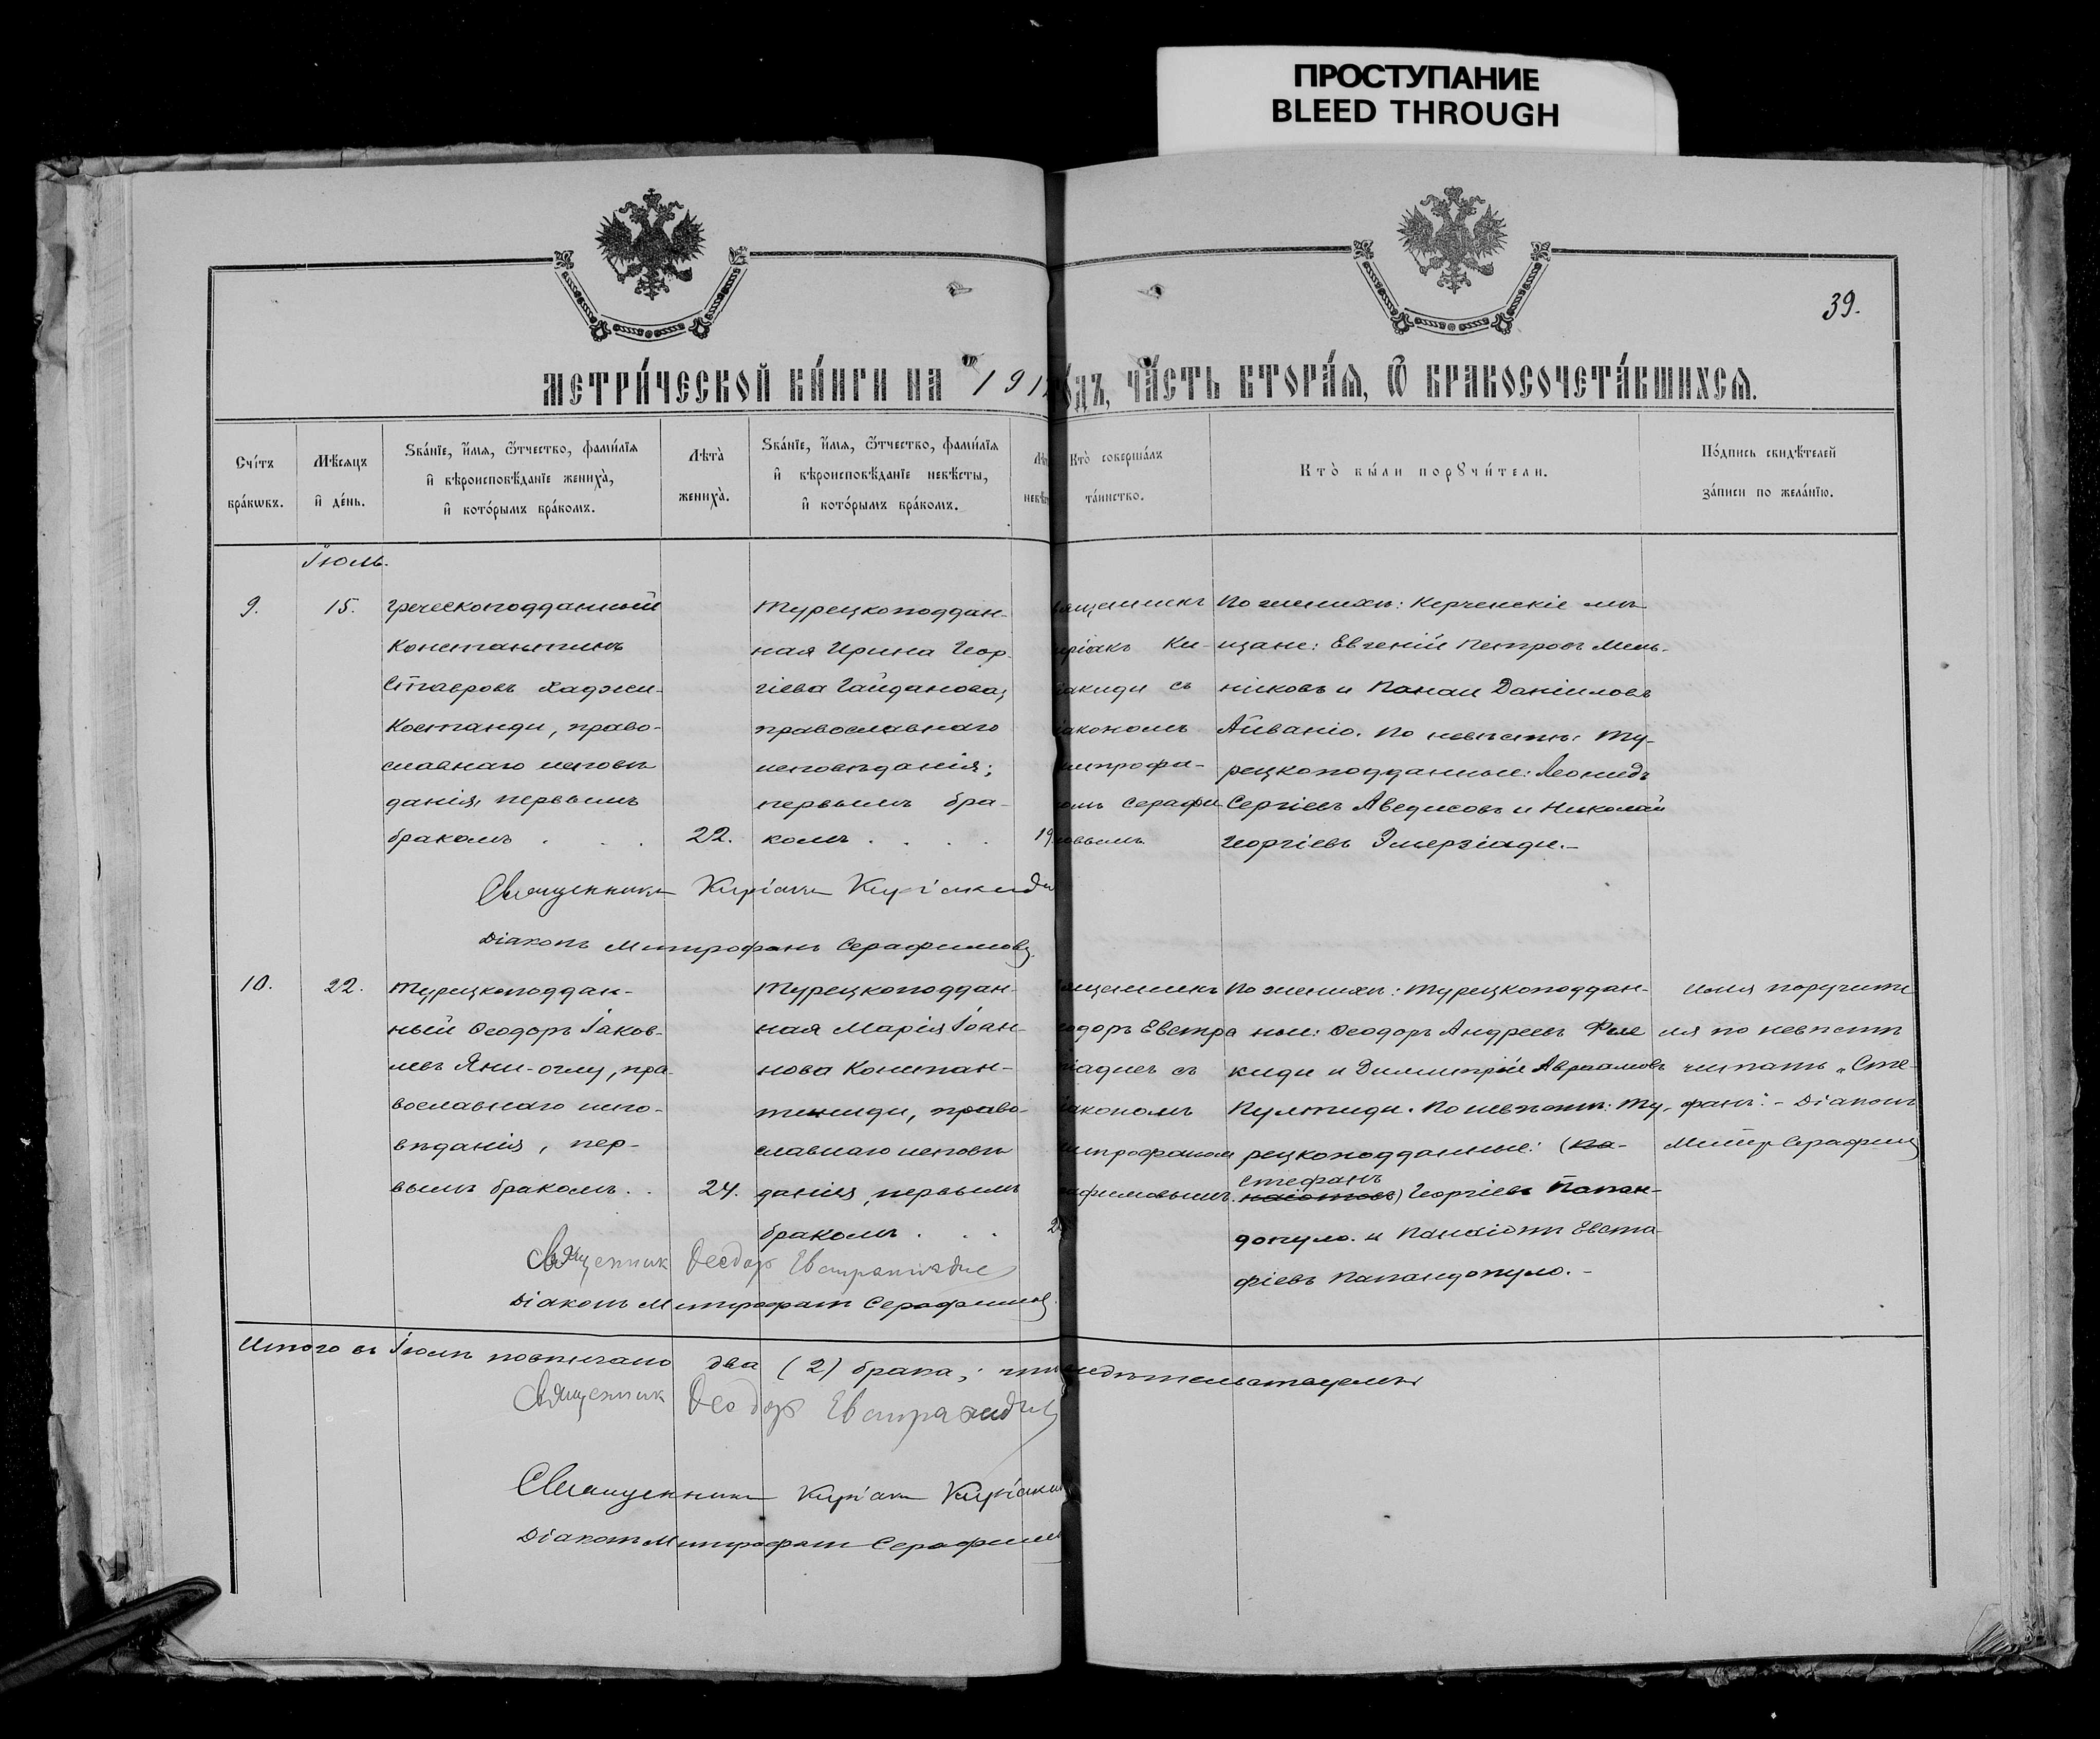 ПРОСТУПАНИЕ
BLEED THROUGH
39.
МЕТРИ́ЧЕСКОЙ КНИ́ГИ НА 191
ДЪ, ЧА́СТЬ ВТОРА́Я, Ѽ БРАКОСОЧЕТА́ВШИХСЯ.
Сче́тъ
бра́кѡвъ.
Мѣ́сяцъ
и҆ де́нь.
Ѕва́нїе, и҆́мя, ѻ҆́тчество, фами́лїя
и҆ вѣроисповѣ́данїе жениха̀,
и҆ кото́рымъ бра́комъ.
Лѣта̀
жениха̀.
Ѕва́нїе, и҆́мя, ѻ҆́тчество, фами́лїя
и҆ вѣроисповѣ́данїе невѣ́сты,
и҆ кото́рымъ бра́комъ.
Кто̀ соверша́лъ
та́инство.
Кто̀ бы́ли порꙋчи́тели.
По́дпись свидѣ́телей
за́писи по жела́нїю.
Іюль.
9.
15.
Греческоподданный
Константинъ
Ставровъ Хаджи-
Костанди, право-
славнаго исповѣ
данія, первымъ
бракомъ . . .
22.
Турецкоподдан-
ная Ирина Геор-
гіева Гайданова,
православнаго
исповѣданія;
первымъ бра-
комъ . . . .
19
ященникъ
иріакъ Ки-
іакиди съ
іакономъ
итрофа-
омъ Серафи
овымъ.
По женихѣ: Керченскіе мѣ
щане: Евгеній Петровъ Мель-
никовъ и Панаи Даніиловъ
Айваніо. По невѣстѣ: Ту-
рецкоподданные: Леонидъ
Сергіевъ Аведисовъ и Николай
Георгіевъ Эмерзіади.-
Священникъ Киріакъ Киріакиди
Діаконъ Митрофанъ Серафимовъ.
10.
22.
Турецкоподдан-
ный Ѳеодоръ Іаков-
левъ Яни-оглу, пра-
вославнаго испо-
вѣданія, пер-
вымъ бракомъ. .
24.
Турецкоподдан-
ная Марія Іоан-
нова Констан-
тиниди, право-
славнаго исповѣ
данія, первымъ
бракомъ . . .
2
ященникъ
одоръ Евстра
іадисъ съ
іакономъ
итрофаномъ
афимовымъ.
По женихѣ: Турецкоподдан-
ные: Ѳеодоръ Андреевъ Филе
киди и Димитрій Авраамовъ
Пултиди. По невѣстѣ: Ту-
рецкоподданные: (Па-
Стефанъ
наіотовъ) Георгіевъ Папан-
допуло. и Панаіотъ Евста-
фіевъ Папандопуло.-
Имя поручите
ля по невѣстѣ
читать „Сте-
фанъ".- Діаконъ
Митр Серафим
Священник Ѳеодор Евстратиадис
Діаконъ Митрофанъ Серафимовъ.
Итого въ Іюлѣ повѣнчано два (2) брака; что видѣтельствуемъ:
Священник Ѳеодор
Священникъ Киріакъ Киріаки
Діаконъ Митрофанъ Серафимо